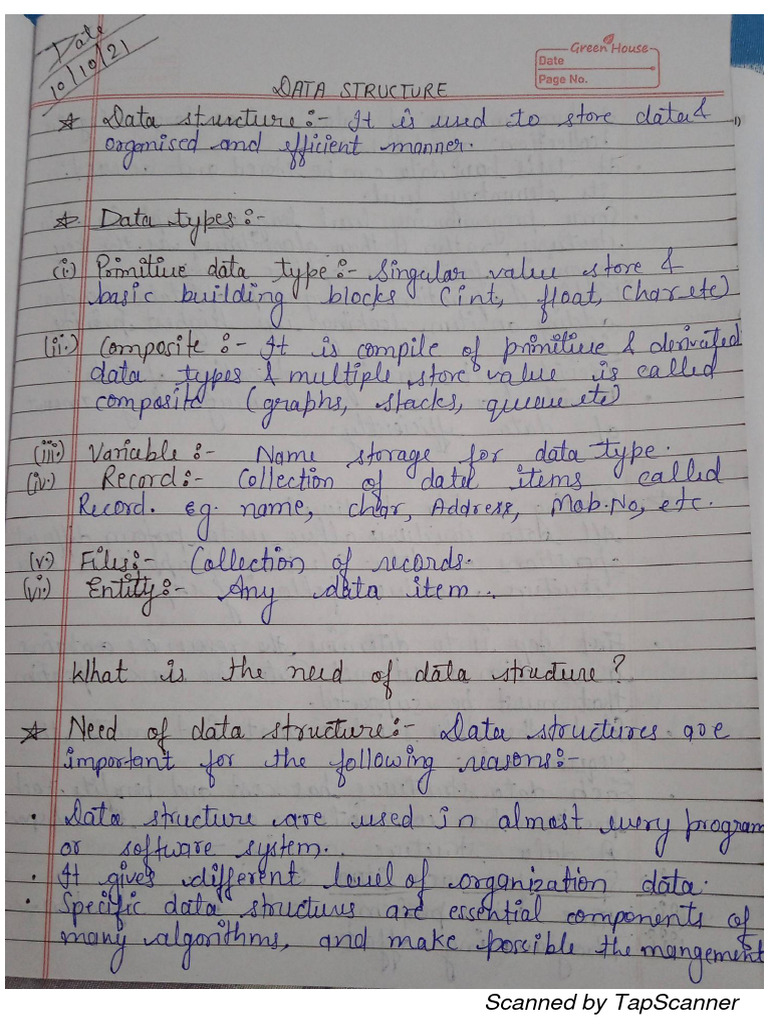 Date
10/10/21
Green House
Date
Page No.
DATA STRUCTURE
★ Data structure:- It is used to store data &
organised and efficient manner.
★ Data types:-
(i) Primitive data type:- Singular value store &
basic building blocks (int, float, char etc)
(ii.) Composite:- It is compile of primitive & derivated
data types & multiple store value is called
composite (graphs, stacks, queue etc)
(iii.) Variable:- Name storage for data type.
(iv.) Record:- Collection of data items called
Record. eg. name, char, Address, Mob.No, etc.
(v.) Files:- Collection of records.
(vi.) Entity:- Any data item..
What is the need of data structure?
★ Need of data structure:- Data structures are
important for the following reasons:-
• Data structure are used in almost every program
or software system..
• It gives different level of organization data.
• Specific data structures are essential components of
many algorithms, and make possible the mangement
Scanned by TapScanner